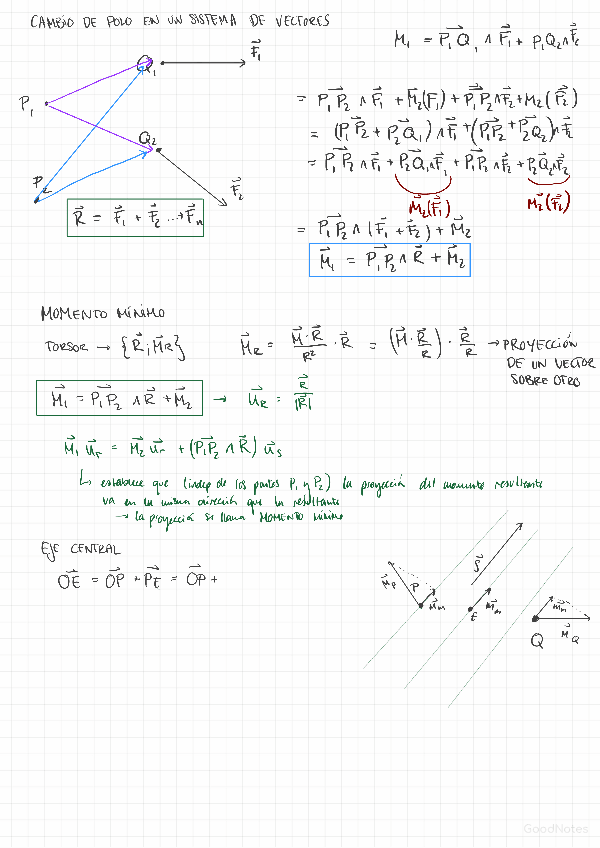 CAMBIO DE POLO EN UN SISTEMA DE VECTORES
M₁ = P₁Q₁ ∧ F₁ + P₁Q₂ ∧ F₂
Q₁ F₁
P₁
Q₂
P₂
F₂
R = F₁ + F₂ ... + Fn
= P₁P₂ ∧ F₁ + M₂(F₁) + P₁P₂ ∧ F₂ + M₂(F₂)
= (P₁P₂ + P₂Q₁) ∧ F₁ + (P₁P₂ + P₂Q₂) ∧ F₂
= P₁P₂ ∧ F₁ + P₂Q₁ ∧ F₁ + P₁P₂ ∧ F₂ + P₂Q₂ ∧ F₂
M₂(F₁) M₂(F₂)
= P₁P₂ ∧ (F₁ + F₂) + M₂
M₁ = P₁P₂ ∧ R + M₂
MOMENTO MÍNIMO
TORSOR → {R; MR} MR = M·R/R² · R = (M · R/R) · R/R → PROYECCIÓN
DE UN VECTOR
SOBRE OTRO
M₁ = P₁P₂ ∧ R + M₂ → uR = R/|R|
M₁ ur = M₂ ur + (P₁P₂ ∧ R) us
↳ establece que (indep de los puntos P₁ y P₂) la proyección del momento resultante
va en la misma dirección que la resultante
→ la proyección se llama MOMENTO mínimo
EJE CENTRAL
OE = OP + PE = OP +
MP P Mm
E Mm
Mm
Q MQ
GoodNotes